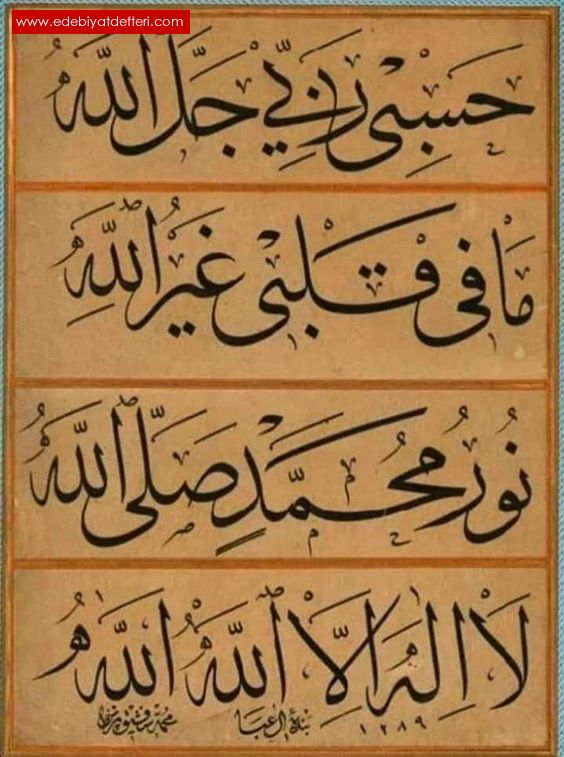 www.edebiyatdefteri.com
حَسْبِى رَبِّي جَلَّ اللّٰهُ
مَا فِى قَلْبِى غَيْرُ اللّٰهِ
نُورُ مُحَمَّدٍ صَلَّى اللّٰهُ
لَا اِلٰهَ اِلَّا اللّٰهُ اَللّٰهُ
١٢٨٩